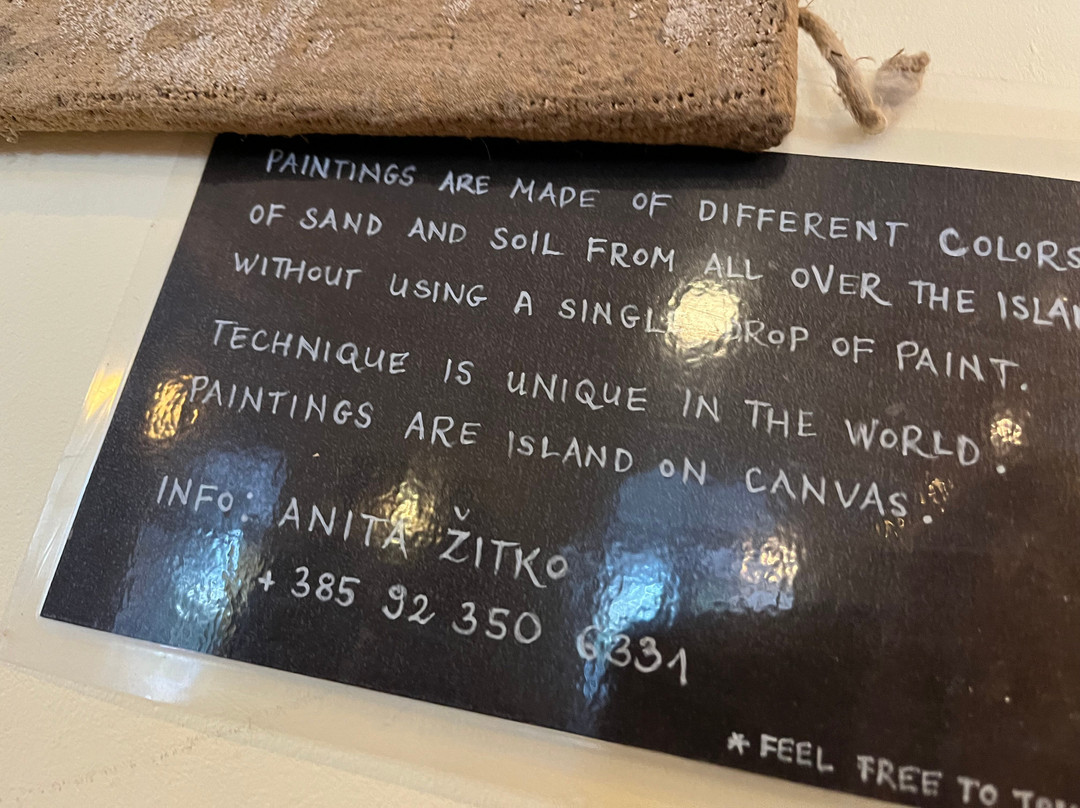 PAINTINGS ARE MADE OF DIFFERENT COLORS
OF SAND AND SOIL FROM ALL OVER THE
WITHOUT USING A SINGLE DROP OF PAINT.
TECHNIQUE IS UNIQUE IN THE WORLD.
PAINTINGS ARE ISLAND ON CANVAS.
INFO: ANITA ŽITKO
+ 385 92 350 6331
* FEEL FREE TO